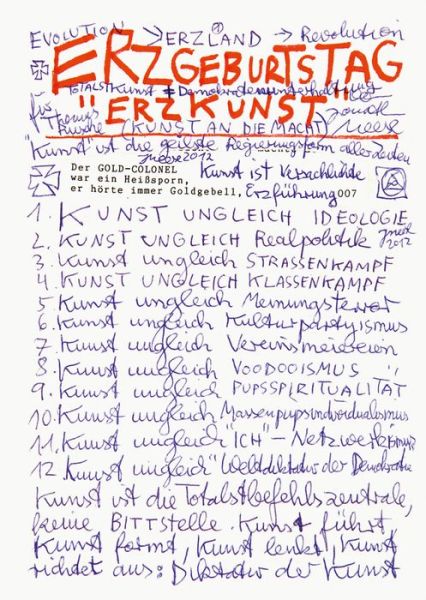 EVOLUTION → ERZLAND → Revolution
ERZGEBURTSTAG
TOTALSTKunst ≠
für
"ERZKUNST"
Thomas
(KUNST AN DIE MACHT) Meese
"Kunst" ist die geilste Regierungsform aller Zeiten
Meese 2012
Der GOLD-COLONEL
war ein Heißsporn,
er hörte immer Goldgebell,
Kunst ist Versachlichte
Erzführung 007
1. KUNST UNGLEICH IDEOLOGIE
2. KUNST UNGLEICH Realpolitik
Meese 2012
3. Kunst ungleich STRASSENKAMPF
4. KUNST UNGLEICH KLASSENKAMPF
5. Kunst ungleich Meinungsterror
6. Kunst ungleich Kulturpartyismus
7. Kunst ungleich Vereinsmeiereien
8. Kunst ungleich VOODOOISMUS
9. Kunst ungleich PUPSSPIRITUALITÄT
10. Kunst ungleich Massenpupsindividualismus
11. Kunst ungleich "ICH" – Netzwerkismus
12. Kunst ungleich "Weltdiktatur der Demokratie
Kunst ist die Totalstbefehlszentrale,
keine BITTSTELLE. Kunst führt,
Kunst formt, Kunst lenkt, Kunst
richtet aus: Diktatur der Kunst